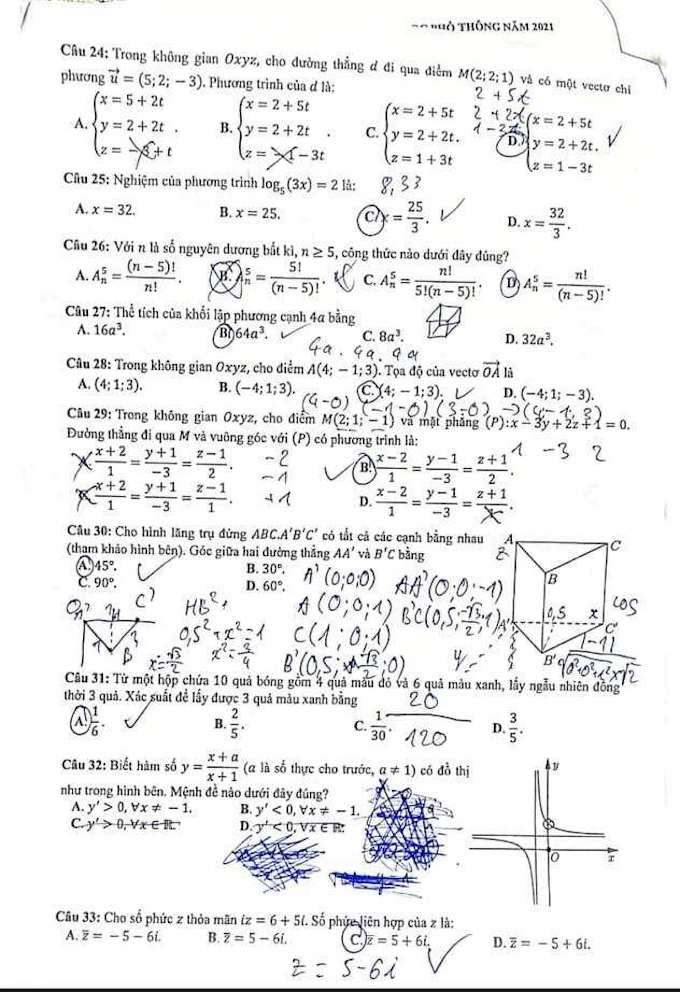 THÔNG NĂM 2021
Câu 24: Trong không gian Oxyz, cho đường thẳng d đi qua điểm M(2; 2; 1) và có một vectơ chỉ
phương u⃗ = (5; 2; −3). Phương trình của d là:
2 + 5t
2 + 2t
1 − 3t
A. {x = 5 + 2t, y = 2 + 2t, z = −3 + t. B. {x = 2 + 5t, y = 2 + 2t, z = −1 − 3t. C. {x = 2 + 5t, y = 2 + 2t, z = 1 + 3t. D. {x = 2 + 5t, y = 2 + 2t, z = 1 − 3t.
Câu 25: Nghiệm của phương trình log₅(3x) = 2 là: 8,33
A. x = 32. B. x = 25. C. x = 25/3. D. x = 32/3.
Câu 26: Với n là số nguyên dương bất kì, n ≥ 5, công thức nào dưới đây đúng?
A. Aₙ⁵ = (n − 5)!/n!. B. Aₙ⁵ = 5!/(n − 5)!. C. Aₙ⁵ = n!/5!(n − 5)!. D. Aₙ⁵ = n!/(n − 5)!.
Câu 27: Thể tích của khối lập phương cạnh 4a bằng
A. 16a³. B. 64a³. C. 8a³. D. 32a³.
4a . 4a . 4a
Câu 28: Trong không gian Oxyz, cho điểm A(4; −1; 3). Tọa độ của vectơ OA⃗ là
A. (4; 1; 3). B. (−4; 1; 3). C. (4; −1; 3). D. (−4; 1; −3).
(4−0) (−1−0) (3−0) → (4; −1; 3)
Câu 29: Trong không gian Oxyz, cho điểm M(2; 1; −1) và mặt phẳng (P): x − 3y + 2z + 1 = 0.
Đường thẳng đi qua M và vuông góc với (P) có phương trình là:
1 −3 2
A. (x + 2)/1 = (y + 1)/−3 = (z − 1)/2. B. (x − 2)/1 = (y − 1)/−3 = (z + 1)/2.
−2
−1
+1
C. (x + 2)/1 = (y + 1)/−3 = (z − 1)/1. D. (x − 2)/1 = (y − 1)/−3 = (z + 1)/1.
Câu 30: Cho hình lăng trụ đứng ABC.A'B'C' có tất cả các cạnh bằng nhau
(tham khảo hình bên). Góc giữa hai đường thẳng AA' và B'C bằng
A. 45°. B. 30°.
C. 90°. D. 60°.
A'(0;0;0)
A(0;0;1)
C(1;0;1)
AA'(0;0;−1)
HB² +
0,5² + x² = 1
x² = 3/4
x = √3/2
A C
B
0,5 x
A' C'
B'
cos
Câu 31: Từ một hộp chứa 10 quả bóng gồm 4 quả màu đỏ và 6 quả màu xanh, lấy ngẫu nhiên đồng
thời 3 quả. Xác suất để lấy được 3 quả màu xanh bằng
20
120
A. 1/6. B. 2/5. C. 1/30. D. 3/5.
Câu 32: Biết hàm số y = (x + a)/(x + 1) (a là số thực cho trước, a ≠ 1) có đồ thị
như trong hình bên. Mệnh đề nào dưới đây đúng?
A. y' > 0, ∀x ≠ −1. B. y' < 0, ∀x ≠ −1.
C. y' > 0, ∀x ∈ ℝ. D. y' < 0, ∀x ∈ ℝ.
y
O
x
Câu 33: Cho số phức z thỏa mãn iz = 6 + 5i. Số phức liên hợp của z là:
A. z̄ = −5 − 6i. B. z̄ = 5 − 6i. C. z̄ = 5 + 6i. D. z̄ = −5 + 6i.
z = 5 − 6i